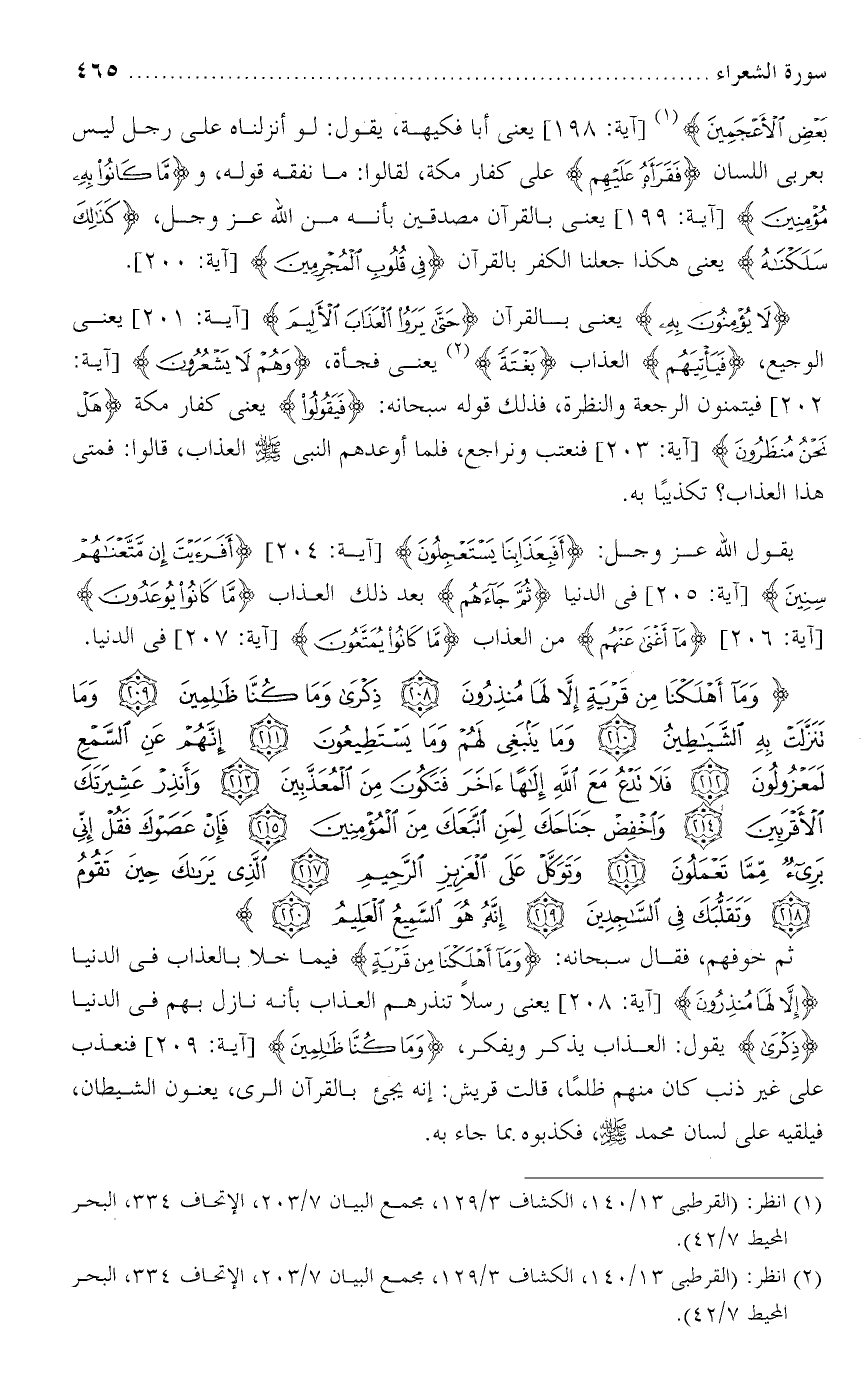 سورة الشعراء ........................................................................ ٤٦٥
بَعْضِ ٱلْأَعْجَمِينَ﴾(١) [آية: ١٩٨] يعنى أبا فكيهة، يقول: لو أنزلناه على رجل ليس
بعربى اللسان ﴿فَقَرَأَهُۥ عَلَيْهِم﴾ على كفار مكة، لقالوا: ما نفقه قوله، و﴿مَّا كَانُوا۟ بِهِۦ
مُؤْمِنِينَ﴾ [آية: ١٩٩] يعنى بالقرآن مصدقين بأنه من الله عز وجل، ﴿كَذَٰلِكَ
سَلَكْنَٰهُ﴾ يعنى هكذا جعلنا الكفر بالقرآن ﴿فِى قُلُوبِ ٱلْمُجْرِمِينَ﴾ [آية: ٢٠٠].
﴿لَا يُؤْمِنُونَ بِهِۦ﴾ يعنى بالقرآن ﴿حَتَّىٰ يَرَوُا۟ ٱلْعَذَابَ ٱلْأَلِيمَ﴾ [آية: ٢٠١] يعنى
الوجيع، ﴿فَيَأْتِيَهُم﴾ العذاب ﴿بَغْتَةً﴾(٢) يعنى فجأة، ﴿وَهُمْ لَا يَشْعُرُونَ﴾ [آية:
٢٠٢] فيتمنون الرجعة والنظرة، فذلك قوله سبحانه: ﴿فَيَقُولُوا۟﴾ يعنى كفار مكة ﴿هَلْ
نَحْنُ مُنظَرُونَ﴾ [آية: ٢٠٣] فنعتب ونراجع، فلما أوعدهم النبى ﷺ العذاب، قالوا: فمتى
هذا العذاب؟ تكذيبًا به.
يقول الله عز وجل: ﴿أَفَبِعَذَابِنَا يَسْتَعْجِلُونَ﴾ [آية: ٢٠٤] ﴿أَفَرَءَيْتَ إِن مَّتَّعْنَٰهُمْ
سِنِينَ﴾ [آية: ٢٠٥] فى الدنيا ﴿ثُمَّ جَآءَهُم﴾ بعد ذلك العذاب ﴿مَّا كَانُوا۟ يُوعَدُونَ﴾
[آية: ٢٠٦] ﴿مَآ أَغْنَىٰ عَنْهُم﴾ من العذاب ﴿مَّا كَانُوا۟ يُمَتَّعُونَ﴾ [آية: ٢٠٧] فى الدنيا.
﴿وَمَآ أَهْلَكْنَا مِن قَرْيَةٍ إِلَّا لَهَا مُنذِرُونَ ٢٠٨ ذِكْرَىٰ وَمَا كُنَّا ظَٰلِمِينَ ٢٠٩ وَمَا
تَنَزَّلَتْ بِهِ ٱلشَّيَٰطِينُ ٢١٠ وَمَا يَنۢبَغِى لَهُمْ وَمَا يَسْتَطِيعُونَ ٢١١ إِنَّهُمْ عَنِ ٱلسَّمْعِ
لَمَعْزُولُونَ ٢١٢ فَلَا تَدْعُ مَعَ ٱللَّهِ إِلَٰهًا ءَاخَرَ فَتَكُونَ مِنَ ٱلْمُعَذَّبِينَ ٢١٣ وَأَنذِرْ عَشِيرَتَكَ
ٱلْأَقْرَبِينَ ٢١٤ وَٱخْفِضْ جَنَاحَكَ لِمَنِ ٱتَّبَعَكَ مِنَ ٱلْمُؤْمِنِينَ ٢١٥ فَإِنْ عَصَوْكَ فَقُلْ إِنِّى
بَرِىٓءٌ مِّمَّا تَعْمَلُونَ ٢١٦ وَتَوَكَّلْ عَلَى ٱلْعَزِيزِ ٱلرَّحِيمِ ٢١٧ ٱلَّذِى يَرَىٰكَ حِينَ تَقُومُ
٢١٨ وَتَقَلُّبَكَ فِى ٱلسَّٰجِدِينَ ٢١٩ إِنَّهُۥ هُوَ ٱلسَّمِيعُ ٱلْعَلِيمُ ٢٢٠﴾
ثم خوفهم، فقال سبحانه: ﴿وَمَآ أَهْلَكْنَا مِن قَرْيَةٍ﴾ فيما خلا بالعذاب فى الدنيا
﴿إِلَّا لَهَا مُنذِرُونَ﴾ [آية: ٢٠٨] يعنى رسلاً تنذرهم العذاب بأنه نازل بهم فى الدنيا
﴿ذِكْرَىٰ﴾ يقول: العذاب يذكر ويفكر، ﴿وَمَا كُنَّا ظَٰلِمِينَ﴾ [آية: ٢٠٩] فنعذب
على غير ذنب كان منهم ظلمًا، قالت قريش: إنه يجئ بالقرآن الرى، يعنون الشيطان،
فيلقيه على لسان محمد ﷺ، فكذبوه بما جاء به.
(١) انظر: (القرطبى ١٤٠/١٣، الكشاف ١٢٩/٣، مجمع البيان ٢٠٣/٧، الإتحاف ٣٣٤، البحر
المحيط ٤٢/٧).
(٢) انظر: (القرطبى ١٤٠/١٣، الكشاف ١٢٩/٣، مجمع البيان ٢٠٣/٧، الإتحاف ٣٣٤، البحر
المحيط ٤٢/٧).